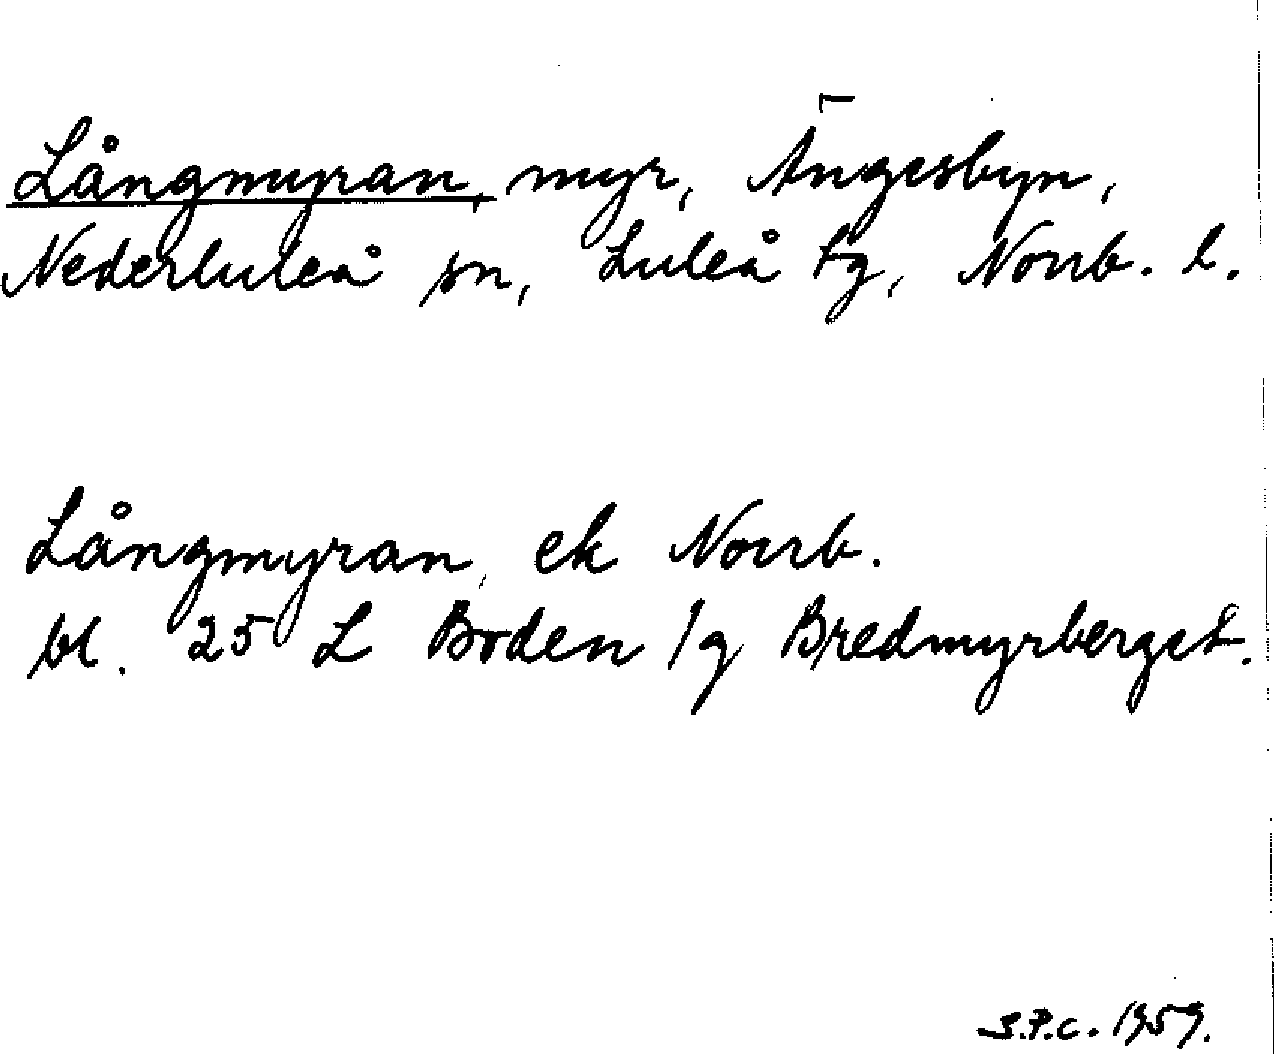 Långmyran, myr, Ängesbyn,
Nederluleå sn, Luleå tg, Norrb. l.
Långmyran, ek Norrb.
bl. 25 L Boden /g Bredmyrberget.
S.P.C. 1959.